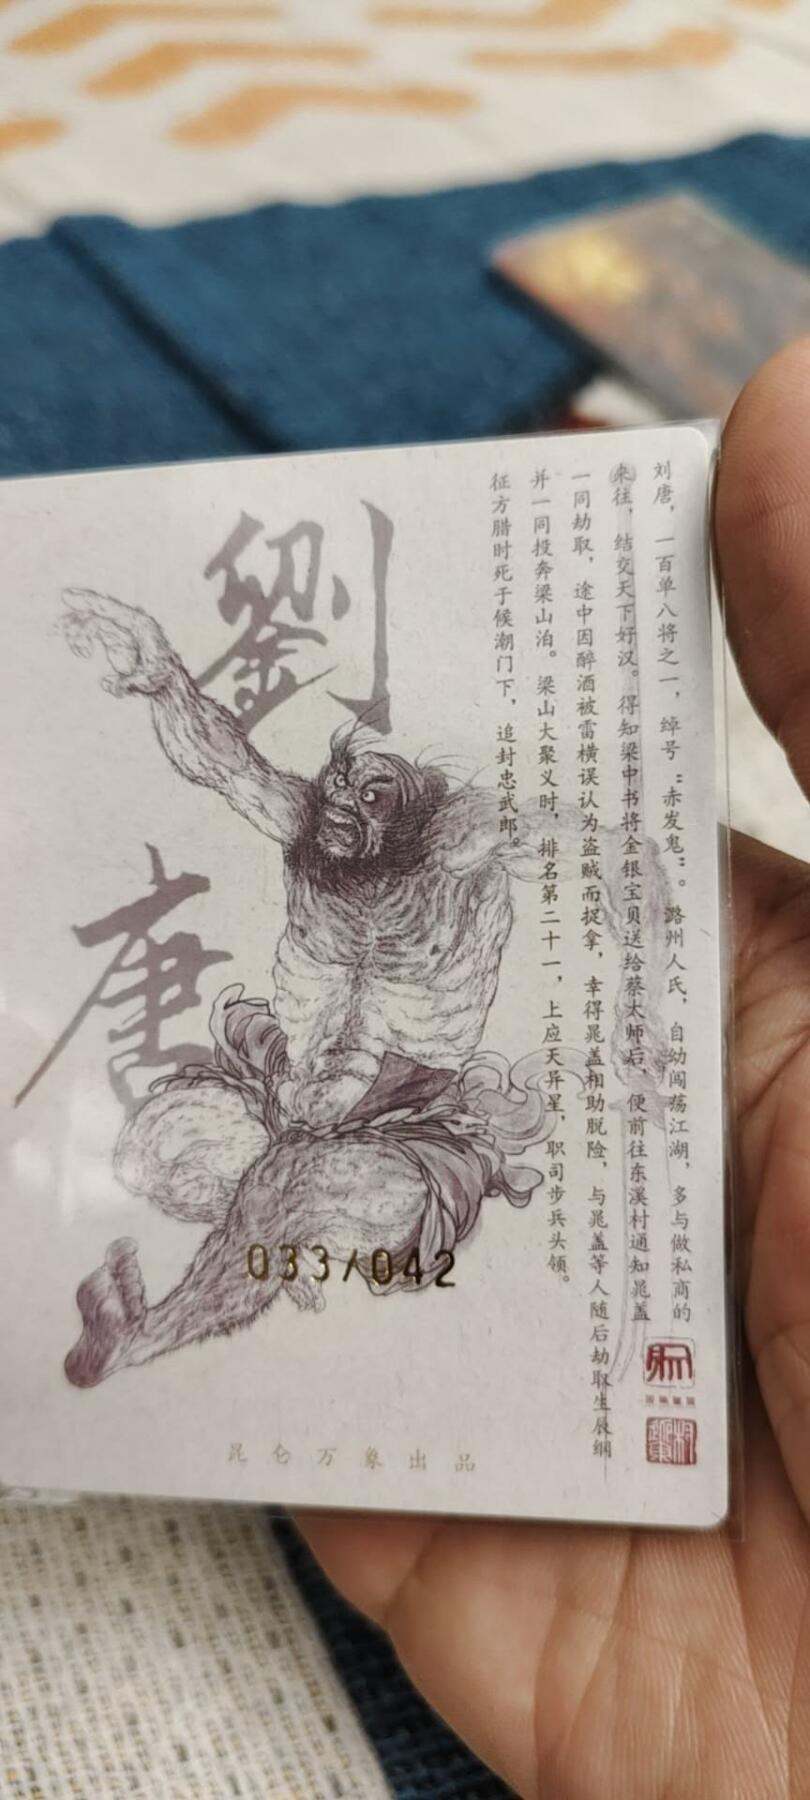 刘唐，一百单八将之一，绰号“赤发鬼”。潞州人氏，自幼闯荡江湖，多与做私商的
来往，结交天下好汉。得知梁中书将金银宝贝送给蔡太师后，便前往东溪村通知晁盖
一同劫取，途中因醉酒被雷横误认为盗贼而捉拿，幸得晁盖相助脱险，与晁盖等人随后劫取生辰纲
并一同投奔梁山泊。梁山大聚义时，排名第二十一，上应天异星，职司步兵头领。
征方腊时死于候潮门下，追封忠武郎。
劉唐
033/042
昆仑万象出品